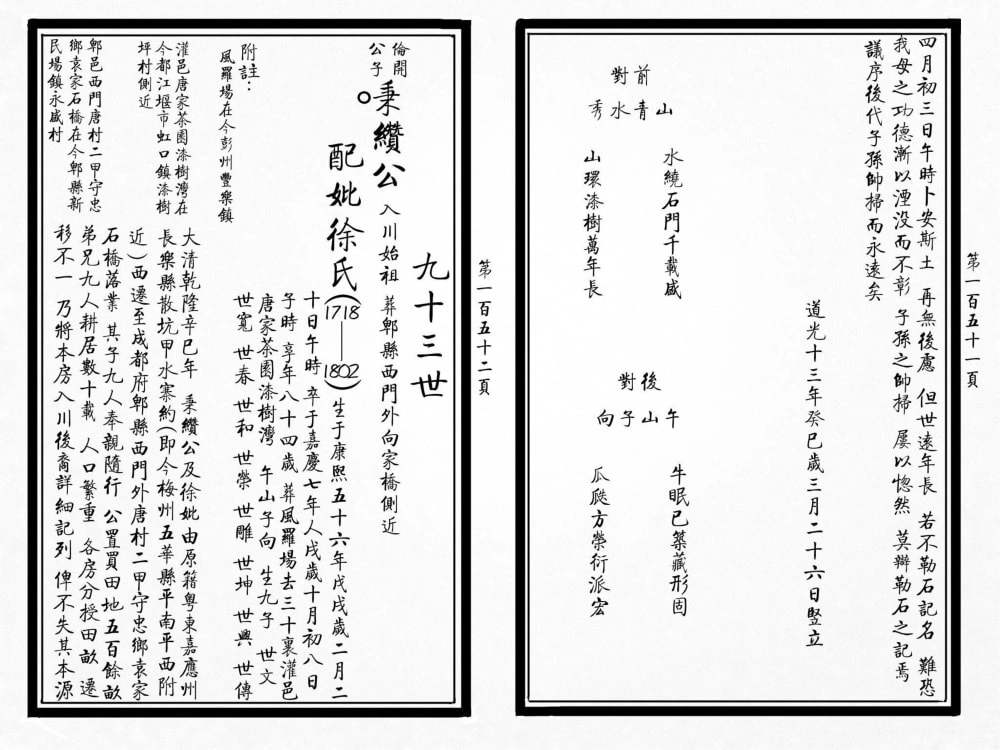 第一百五十一頁
四月初三日午時卜安斯土 再無後慮 但世遠年長 若不勒石記名 難恐
我母之功德漸以湮没而不彰 子孫之帥掃 屢以惚然 莫辯勒石之記焉
議序後代子孫帥掃而永遠矣
道光十三年癸巳歲三月二十六日竪立
前對
山青水秀
水繞石門千載盛
山環漆樹萬年長
後對
午山子向
牛眠已築藏形固
瓜瓞方榮衍派宏
第一百五十二頁
九十三世
倫開公子
秉纘公 入川始祖 葬郫縣西門外向家橋側近
配妣徐氏(1718—1802)生于康熙五十六年戊戌歲二月二
十日午時 卒于嘉慶七年人戌歲十月初八日
子時 享年八十四歲 葬風羅場去三十裏灌邑
唐家茶園漆樹灣 午山子向 生九子 世文
世寬 世春 世和 世榮 世雕 世坤 世興 世傳
附註:
風羅場在今彭州豐樂鎮
灌邑唐家茶園漆樹灣在
今都江堰市虹口鎮漆樹
坪村側近
郫邑西門唐村二甲守忠
鄉袁家石橋在今郫縣新
民場鎮永盛村
大清乾隆辛巳年 秉纘公及徐妣由原籍粤東嘉應州
長樂縣散坑甲水寨約(即今梅州五華縣平南平西附
近)西遷至成都府郫縣西門外唐村二甲守忠鄉袁家
石橋落業 其子九人奉親隨行 公置買田地五百餘畝
弟兄九人耕居數十載 人口繁重 各房分授田畝 遷
移不一 乃將本房入川後裔詳細記列 俾不失其本源